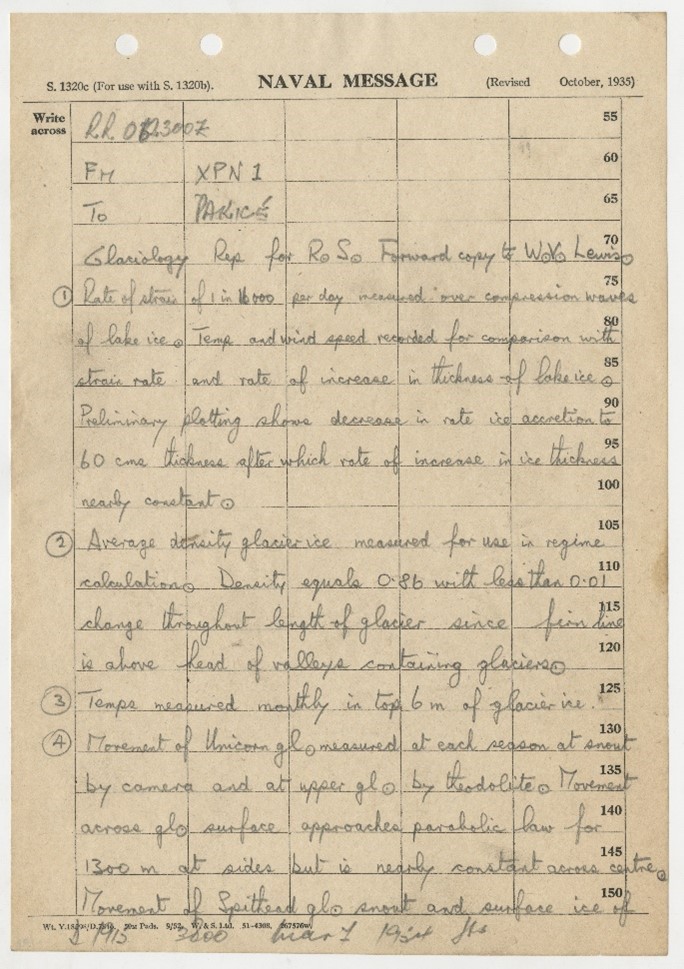 S. 1320c (For use with S. 1320b). NAVAL MESSAGE (Revised October, 1935)
Write across
R.R. 012300Z 55
FM XPN 1 60
To PAKICE 65
70
Glaciology Rep for R⊙S⊙ Forward copy to W⊙V⊙ Lewis⊙
75
① Rate of strain of 1 in 16000 per day measured over compression waves
80
of lake ice⊙ Temp and wind speed recorded for comparison with
85
strain rate and rate of increase in thickness of lake ice⊙
90
Preliminary plotting shows decrease in rate ice accretion to
95
60 cms thickness after which rate of increase in ice thickness
100
nearly constant⊙
105
② Average density glacier ice measured for use in regime
110
calculation⊙ Density equals 0.86 with less than 0.01
115
change throughout length of glacier since firn line
120
is above head of valleys containing glaciers⊙
125
③ Temps measured monthly in top 6 m of glacier ice.
130
④ Movement of Unicorn gl⊙ measured at each season at snout
135
by camera and at upper gl⊙ by theodolite⊙ Movement
140
across gl⊙ surface approaches parabolic law for
145
1300 m at sides but is nearly constant across centre⊙
150
Movement of Spithead gl⊙ snout and surface ice of
Wt. 51-4308.
1915 3800 Mar 1 1954